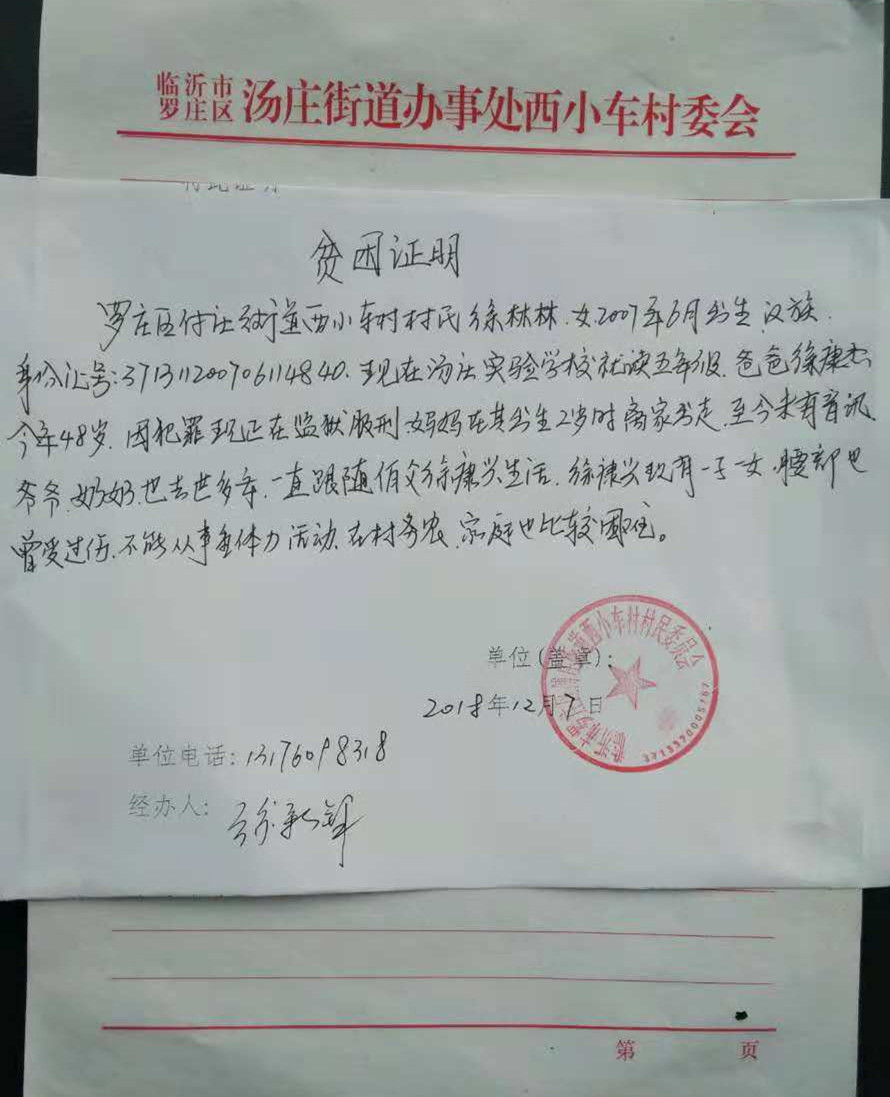 临沂市
罗庄区 汤庄街道办事处西小车村委会
贫困证明
罗庄区付庄街道西小车村村民徐林林.女2007年6月出生.汉族.
身份证号:371311200706114840.现在汤庄实验学校就读五年级.爸爸徐康杰
今年48岁.因犯罪现正在监狱服刑.妈妈在其出生2岁时离家出走.至今未有音讯
爷爷.奶奶.也去世多年.一直跟随伯父徐康兴生活.徐康兴现有一子一女.腰部也
曾受过伤.不能从事重体力活动.在村务农.家庭也比较困难。
单位(盖章):
2018年12月7日
单位电话:13176098318
经办人:
西小车村村民委员会
3713370005167
第 页